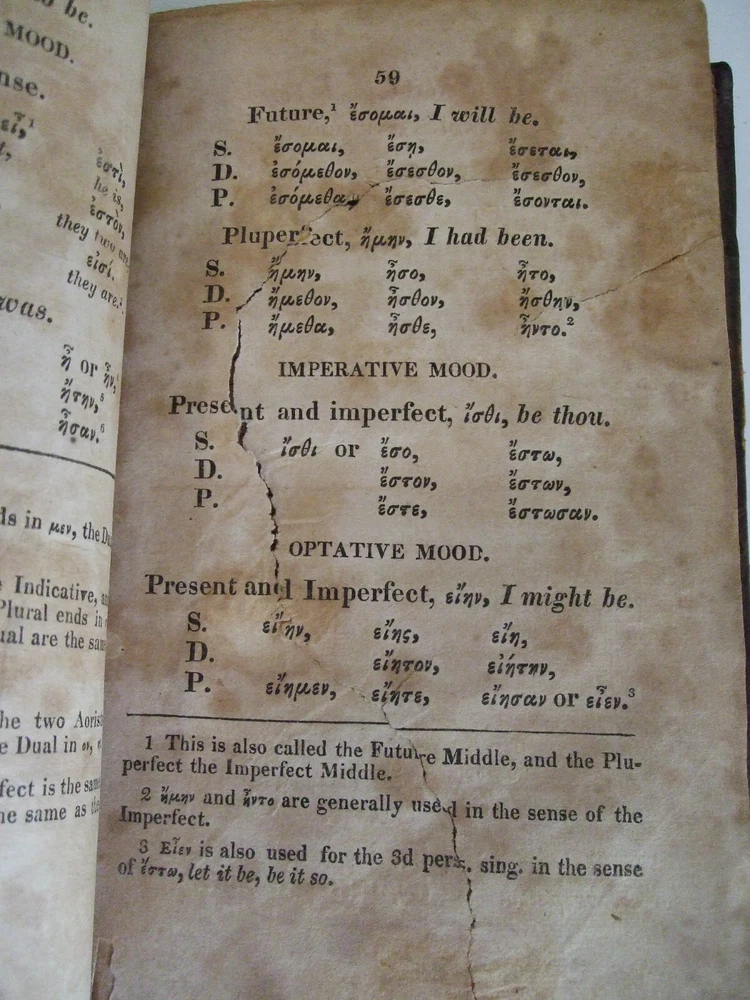 be.
MOOD.
nse.
ἐστὶ,
he is,
ἐστὸν,
they two are
εἰσί.
they are.
was.
ἦ or ἦν,
ἤτην,⁵
ἦσαν.⁶
ds in μεν, the Du
Indicative, a
Plural ends in
ual are the sam
he two Aoris
e Dual in
fect is the sam
ne same as the
59
Future,¹ ἔσομαι, I will be.
S. ἔσομαι, ἔσῃ, ἔσεται,
D. ἐσόμεθον, ἔσεσθον, ἔσεσθον,
P. ἐσόμεθα, ἔσεσθε, ἔσονται.
Pluperfect, ἤμην, I had been.
S. ἤμην, ἦσο, ἦτο,
D. ἤμεθον, ἦσθον, ἤσθην,
P. ἤμεθα, ἦσθε, ἦντο.²
IMPERATIVE MOOD.
Present and imperfect, ἴσθι, be thou.
S. ἴσθι or ἔσο, ἔστω,
D. ἔστον, ἔστων,
P. ἔστε, ἔστωσαν.
OPTATIVE MOOD.
Present and Imperfect, εἴην, I might be.
S. εἴην, εἴης, εἴη,
D. εἴητον, εἰήτην,
P. εἴημεν, εἴητε, εἴησαν or εἶεν.³
1 This is also called the Future Middle, and the Plu-
perfect the Imperfect Middle.
2 ἤμην and ἦντο are generally used in the sense of the
Imperfect.
3 Εἶεν is also used for the 3d pers. sing. in the sense
of ἔστω, let it be, be it so.